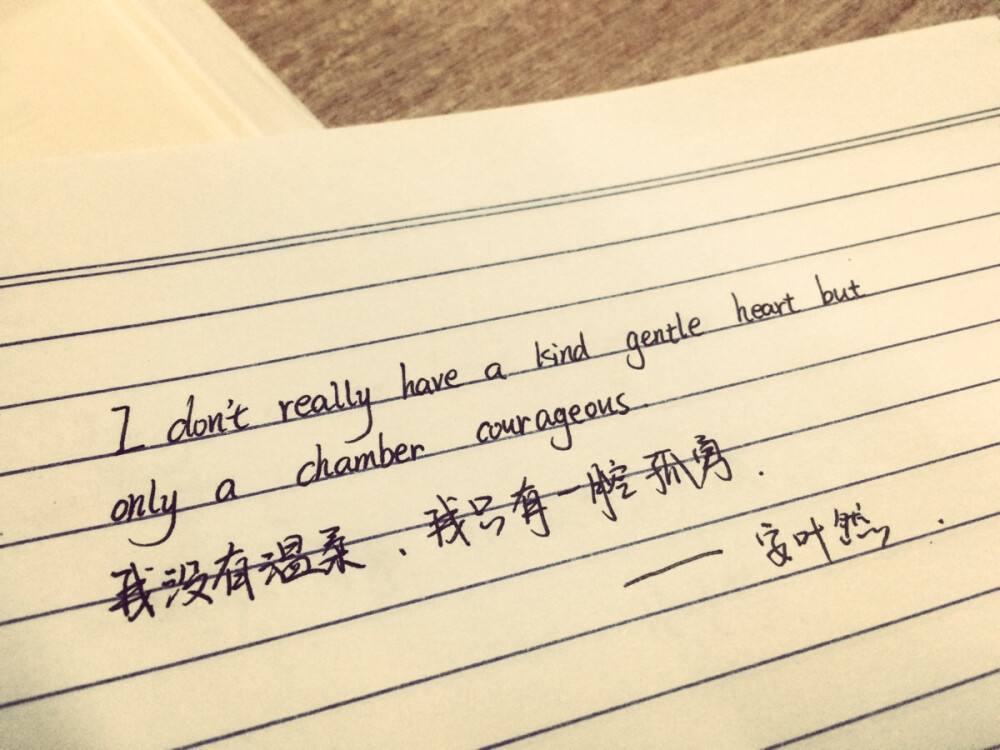 I don't really have a kind gentle heart but
only a chamber courageous.
我没有温柔.我只有一腔孤勇.
——安叶然.